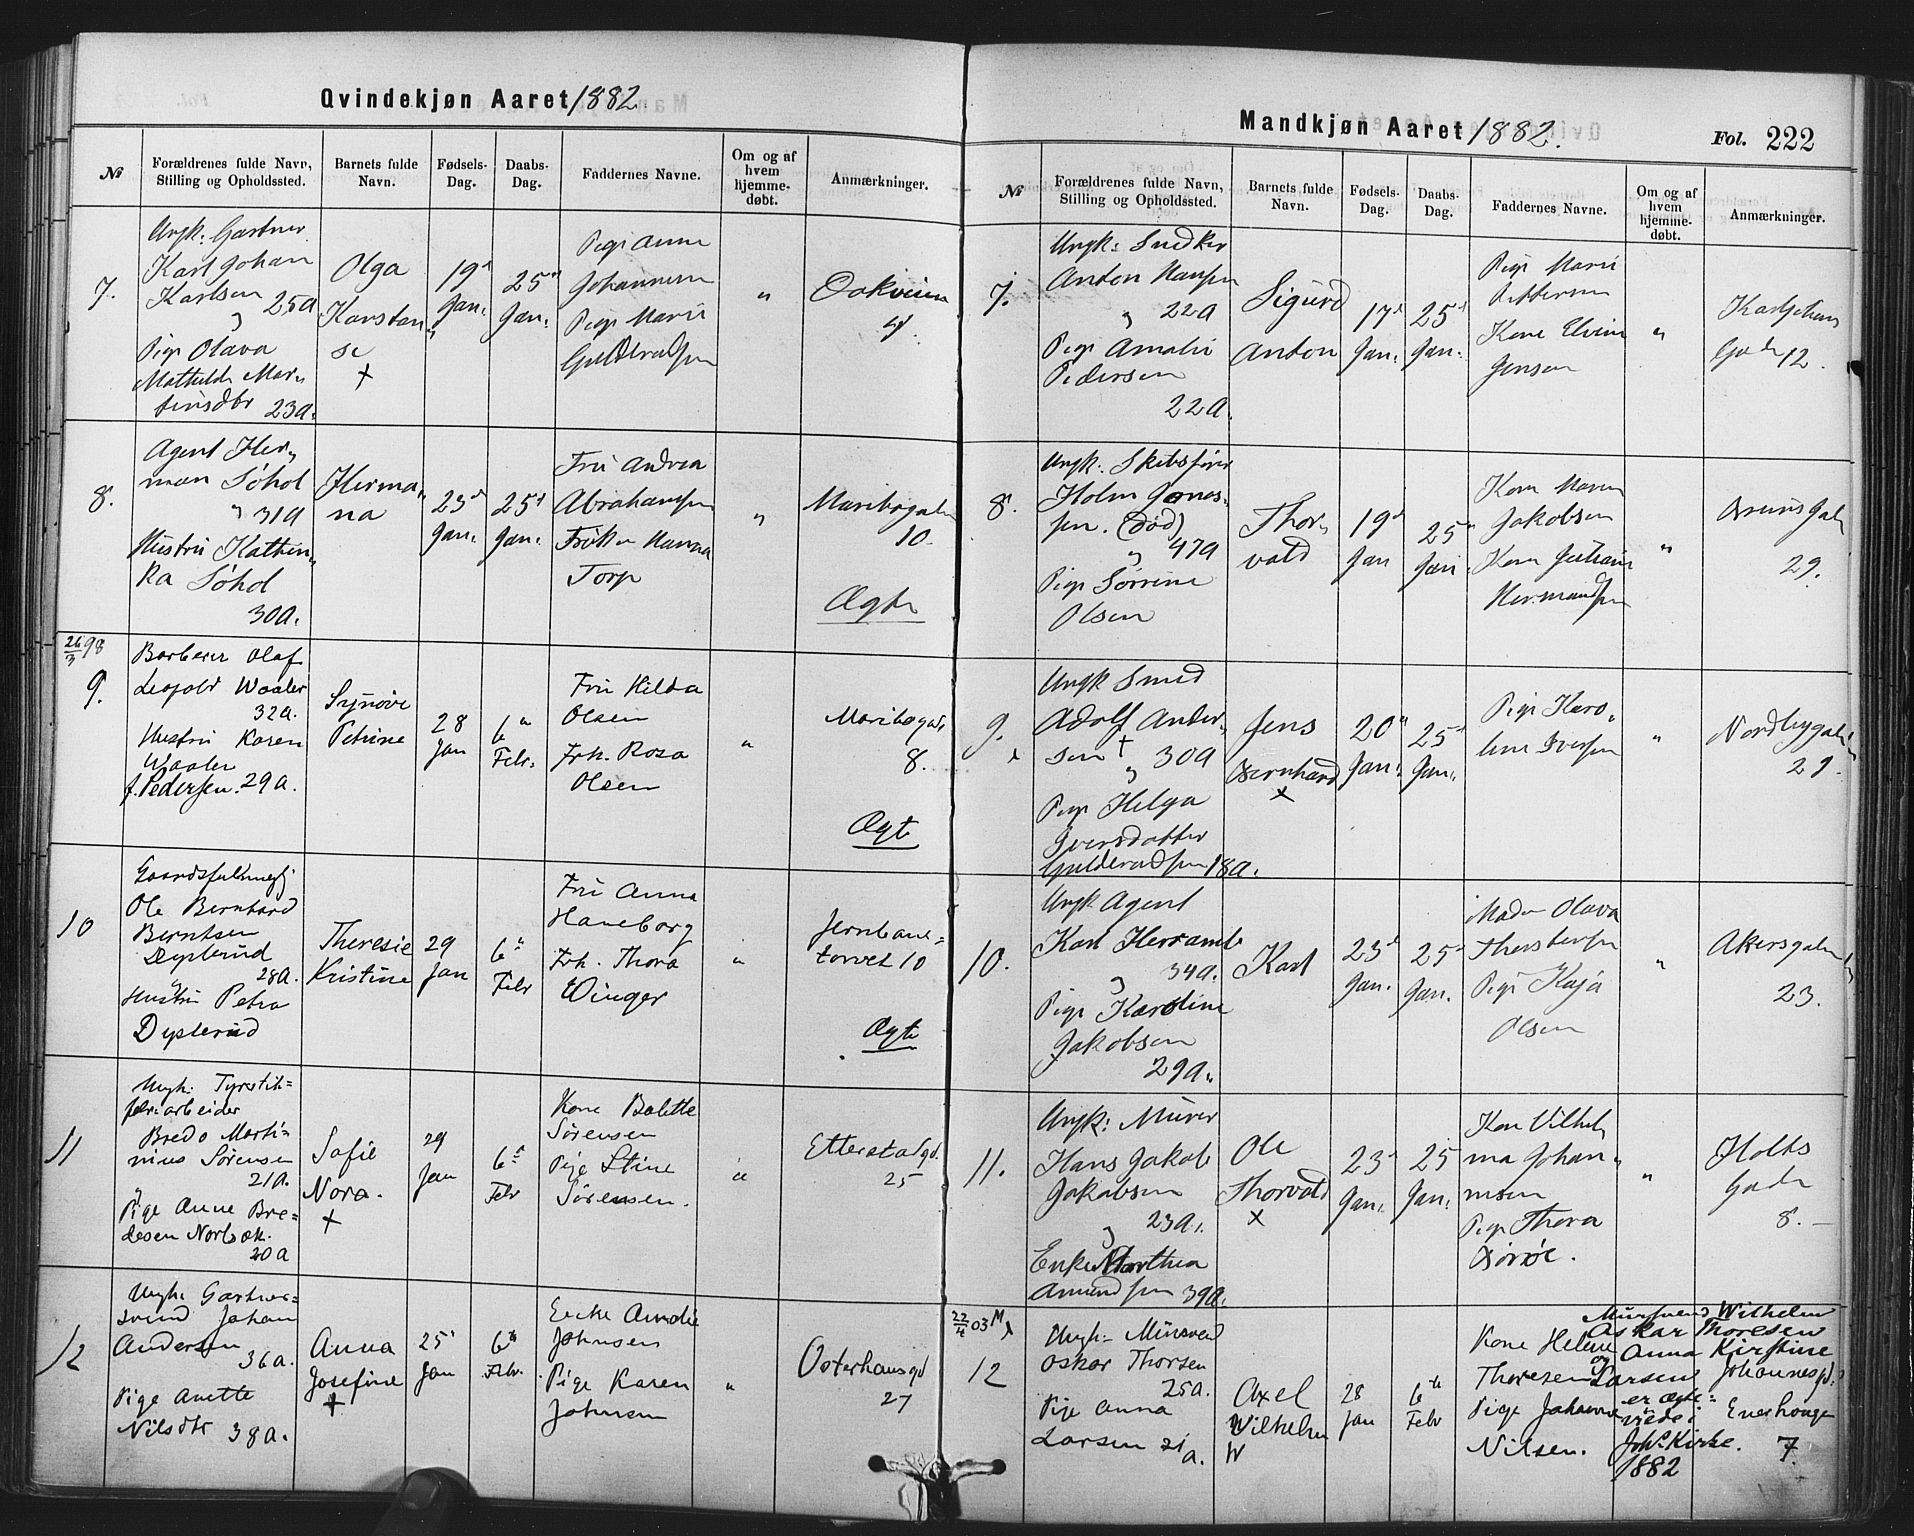 Qvindekjøn Aaret 1882
№
Forældrenes fulde Navn,
Stilling og Opholdssted.
Barnets fulde
Navn.
Fødsels-
Dag.
Daabs-
Dag.
Faddernes Navne.
Om og af
hvem
hjemme-
døbt.
Anmærkninger.
7.
Ungk: Gartner
Karl Johan
Karlsen 25a
Pige Olava
Mathilde Mar„
tinsdtr 23a.
Olga
Karstan„
se
+
19d
Jan.
25d
Jan.
Pige Anne
Johannesen
Pige Marie
Guldbrandsen
„
4.
8.
Agent Her„
man Søhol
31a
Hustru Kathin„
ka Søhol
30a.
Herma„
na
23d
Jan.
25d
Jan.
Fru Andrea
Abrahamsen
Frøken Hanna
Torp
„
Maribogaden
10.
Ægte
26/3 98
9.
Barberer Olaf
Leopold Waaler
32a.
Hustru Karen
Waaler
f. Pedersen. 29a.
Synøve
Petrine
28
Jan
6te
Febr.
Fru Hilda
Olsen
Frk. Rosa
Olsen
„
Maribogad.
8.
Ægte
10
Gaardsfuldmægj.
Ole Bernhard
Berntsen
Dysterud
28a.
Hustru Petra
Dysterud
Theresie
Kristine
29
Jan
6te
Febr
Fru Anna
Haneborg
Frk. Thora
Winger
„
Jernbane=
torvet 10
Ægte
11
Ungk. Fyrstik=
fabr.arbeider
Bredo Marti=
nius Sørensen
21a.
Pige Anne Bre=
desen Norbæk.
20a
Sofie
Nora.
+
29
Jan
6te
Febr
Kone Bolette
Sørensen
Pige Stine
Sørensen.
„
Etterstadgd.
25
12
Ungk. Gartner=
svend Johan
Andersen
36a.
Pige Anette
Nilsdtr 38a.
Anna
Josefine
+
25
Jan
6te
Febr.
Enke Amalie
Johnsen
Pige Karen
Johnsen
„
Osterhausgd
27
Mandkjøn Aaret 1882.
Fol. 222
№
Forældrenes fulde Navn,
Stilling og Opholdssted.
Barnets fulde
Navn.
Fødsels-
Dag.
Daabs-
Dag.
Faddernes Navne.
Om og af
hvem
hjemme-
døbt.
Anmærkninger.
7.
Ungk: Snedker
Anton Hansen
22a
Pige Amalie
Pedersen
22a.
Sigurd
Anton
17d
Jan.
25d
Jan.
Pige Marie
Pettersen
Kone Elvine
Jensen
„
Karl Johans
Gade 12.
8.
Ungk: Skibsfører
Holm Jonas„
sen. (død)
47a
Pige Sørrine
Olsen
Thor„
vald
19d
Jan
25d
Jan.
Kone Maren
Jakobsen
Kone Juliane
Hermandsen
„
Brunsgaden
29.
9.
x
Ungk Smed
Adolf Ander„
sen + 30a
Pige Helga
Iversdatter
Gulderudsen 18a.
Jens
Bernhard
x
20d
Jan.
25d
Jan.
Pige Karo„
line Iversen
„
Nordbygaden
21.
10.
Ungk Agent
Karl Herrambe
34a.
Pige Karoline
Jakobsen
29a.
Karl
23d
Jan.
25d
Jan.
Madm Olava
Thorstensen
Pige Kaja
Olsen
„
Akersgaden
23.
11.
Ungk: Murer
Hans Jakob
Jakobsen
23a.
Enke Marthea
Amundsen 39a.
Ole
Thorvald
x
23d
Jan.
25
Jan.
Kone Vilhel„
ma Johan„
nesen
Pige Thora
Børøe.
„
Holts
Gade
8.–
22/4 03 M
x
12
Ungk. Mursvend
Oskar Thorsen
25a.
Pige Anna
Larsen 21
a.
Axel
Wilhelm
W
28
Jan
6te
Febr
Kone Helene
Thoresen
Pige Johanne
Nilsen.
Mursvend Wilhelm
Oskar Thoresen
og Anna Kirstine
Larsen
er ægte=
viede i
Joh.s Kirke.
1882
Johannesgd.
Enerhaugen
7.